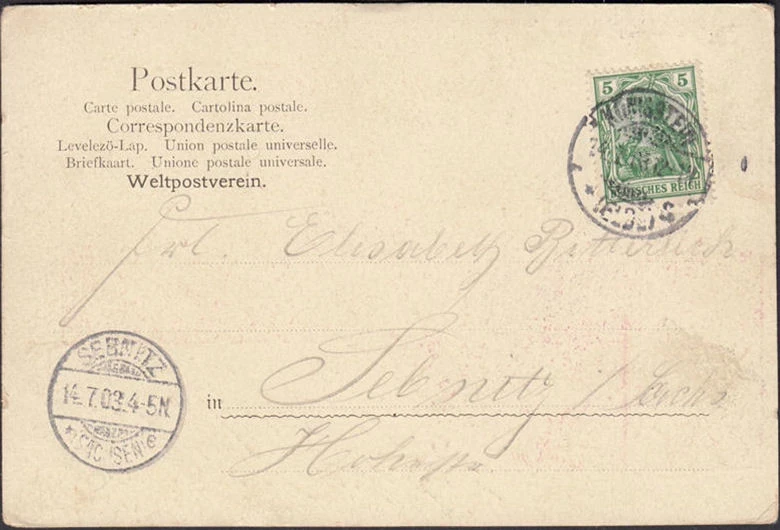 Postkarte.
Carte postale. Cartolina postale.
Correspondenzkarte.
Levelező-Lap. Union postale universelle.
Briefkaart. Unione postale universale.
Weltpostverein.
5 5
DEUTSCHES REICH
KÖNIGSTEIN
(ELBE)
Frl. Elisabeth
SEBNITZ
14.7.03.4-5N
*(SACHSEN)*
in Sebnitz / Sachs